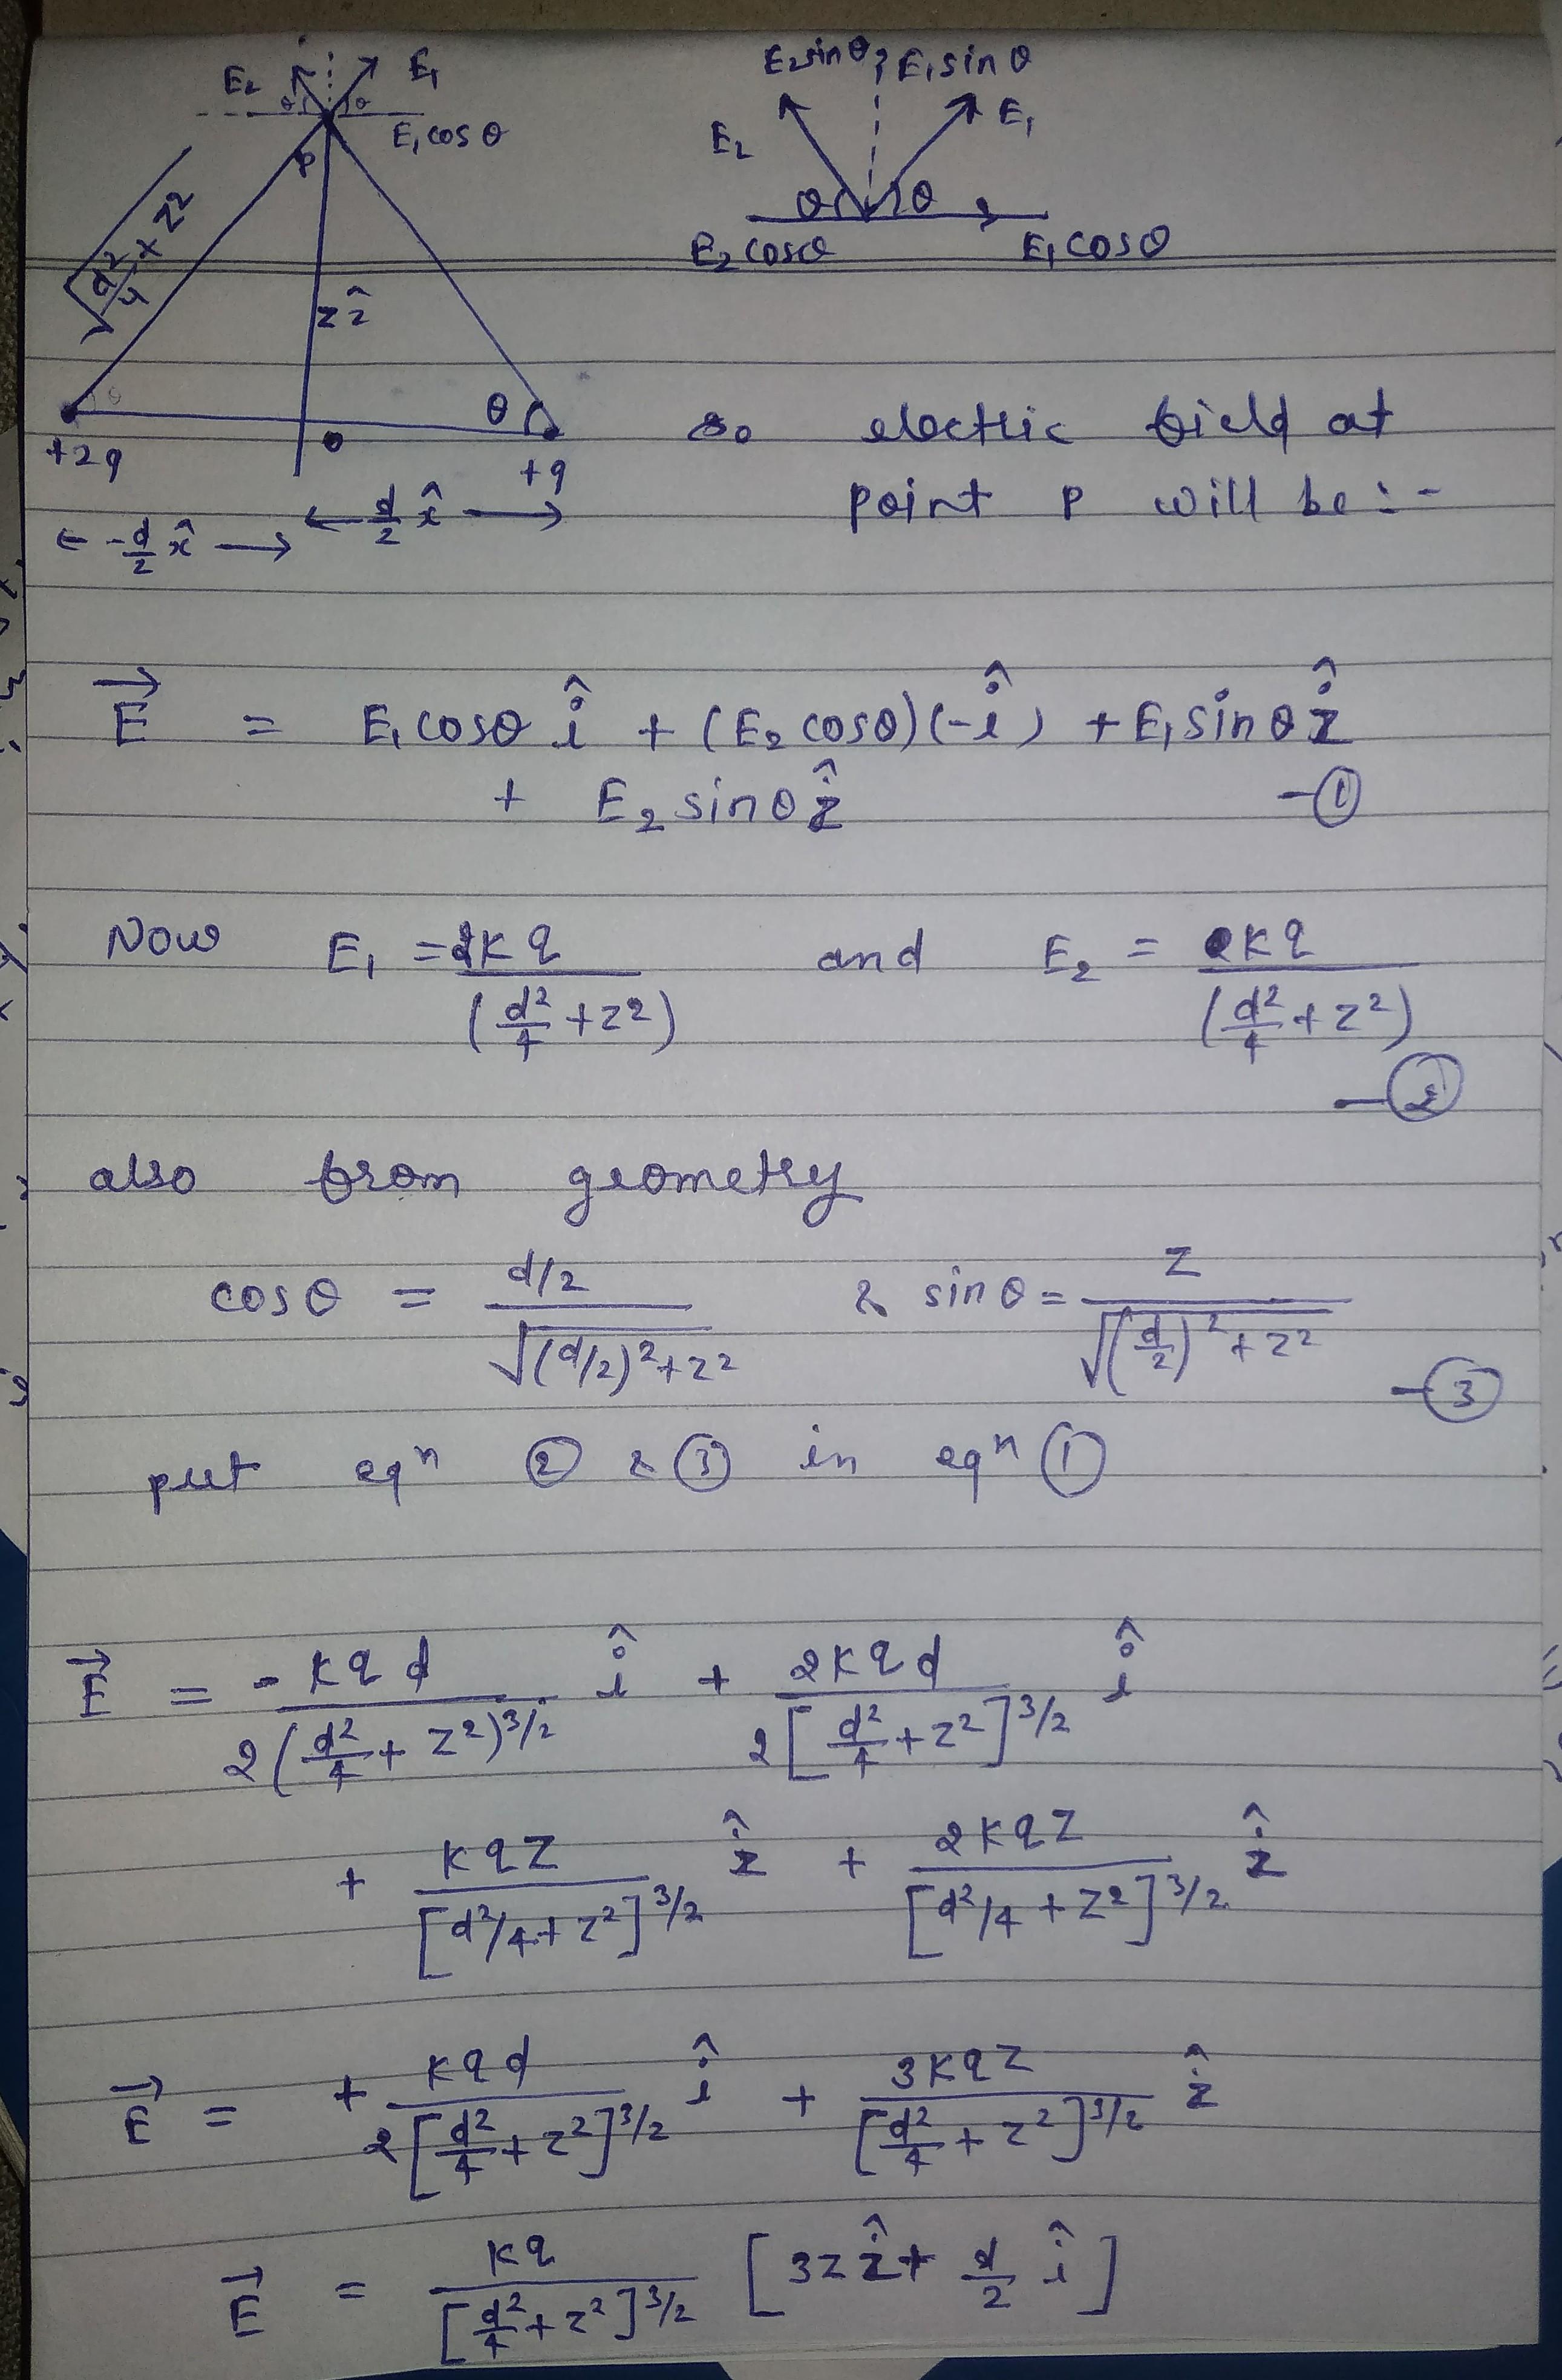 E₂ E₁
θ θ
E₁ cos θ
P
√(d²/4 + z²)
z ẑ
θ
+2q 0 +q
← -d/2 x̂ → ← d/2 x̂ →
E₂ sin θ E₁ sin θ
E₂ E₁
θ θ
E₂ cos θ E₁ cos θ
so electric field at
point P will be :-
E⃗ = E₁ cosθ î + (E₂ cosθ)(-î) + E₁ sinθ ẑ
+ E₂ sinθ ẑ -①
Now E₁ = 2kq/(d²/4 + z²) and E₂ = kq/(d²/4 + z²)
-②
also from geometry
cosθ = (d/2)/√((d/2)² + z²) & sinθ = z/√((d/2)² + z²)
-③
put eqⁿ ② & ③ in eqⁿ ①
E⃗ = -kqd/2(d²/4 + z²)^3/2 î + 2kqd/2[d²/4 + z²]^3/2 î
+ kqz/[d²/4 + z²]^3/2 ẑ + 2kqz/[d²/4 + z²]^3/2 ẑ
E⃗ = + kqd/2[d²/4 + z²]^3/2 î + 3kqz/[d²/4 + z²]^3/2 ẑ
E⃗ = kq/[d²/4 + z²]^3/2 [3z ẑ + d/2 î]